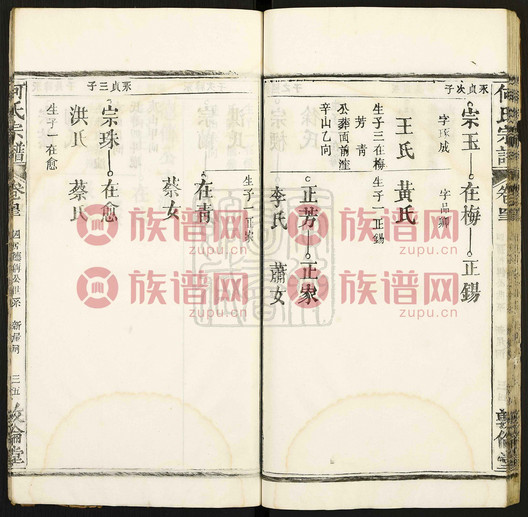 何氏宗譜
卷
永貞次子
宗玉 在梅 正錫
字 成
王氏 黃氏
生子三在梅 生子一正錫
芳 青
公葬面前
辛山乙向
正芳 正家
李氏 蕭女
生子一正家
在青
蔡女
永貞三子
宗珠 在愈
洪氏 蔡氏
生子一在愈
何氏宗譜
卷
三五
敦倫堂
敦倫堂
族谱网
zupu.cn
族谱网
zupu.cn
族谱网
zupu.cn
族谱网
zupu.cn